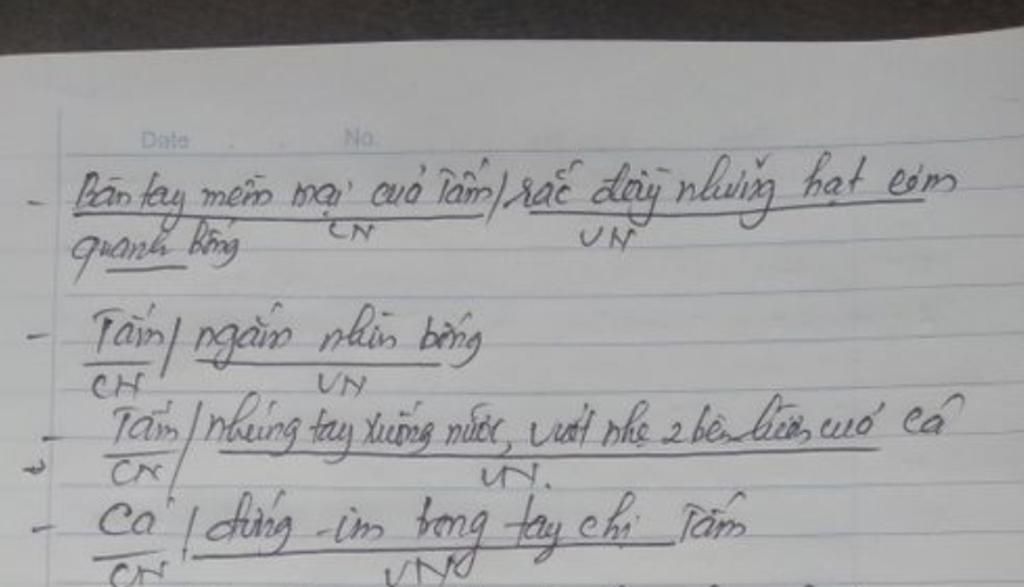 Date . . No.
- Bàn tay mềm mại của Tấm / rắc đầy những hạt cơm
CN VN
quanh bống
- Tấm / ngắm nhìn bống
CN VN
- Tấm / nhúng tay xuống nước, vuốt nhẹ 2 bên lườn cuả cá
CN VN.
- Cá / đứng im trong tay chị Tấm
CN VN